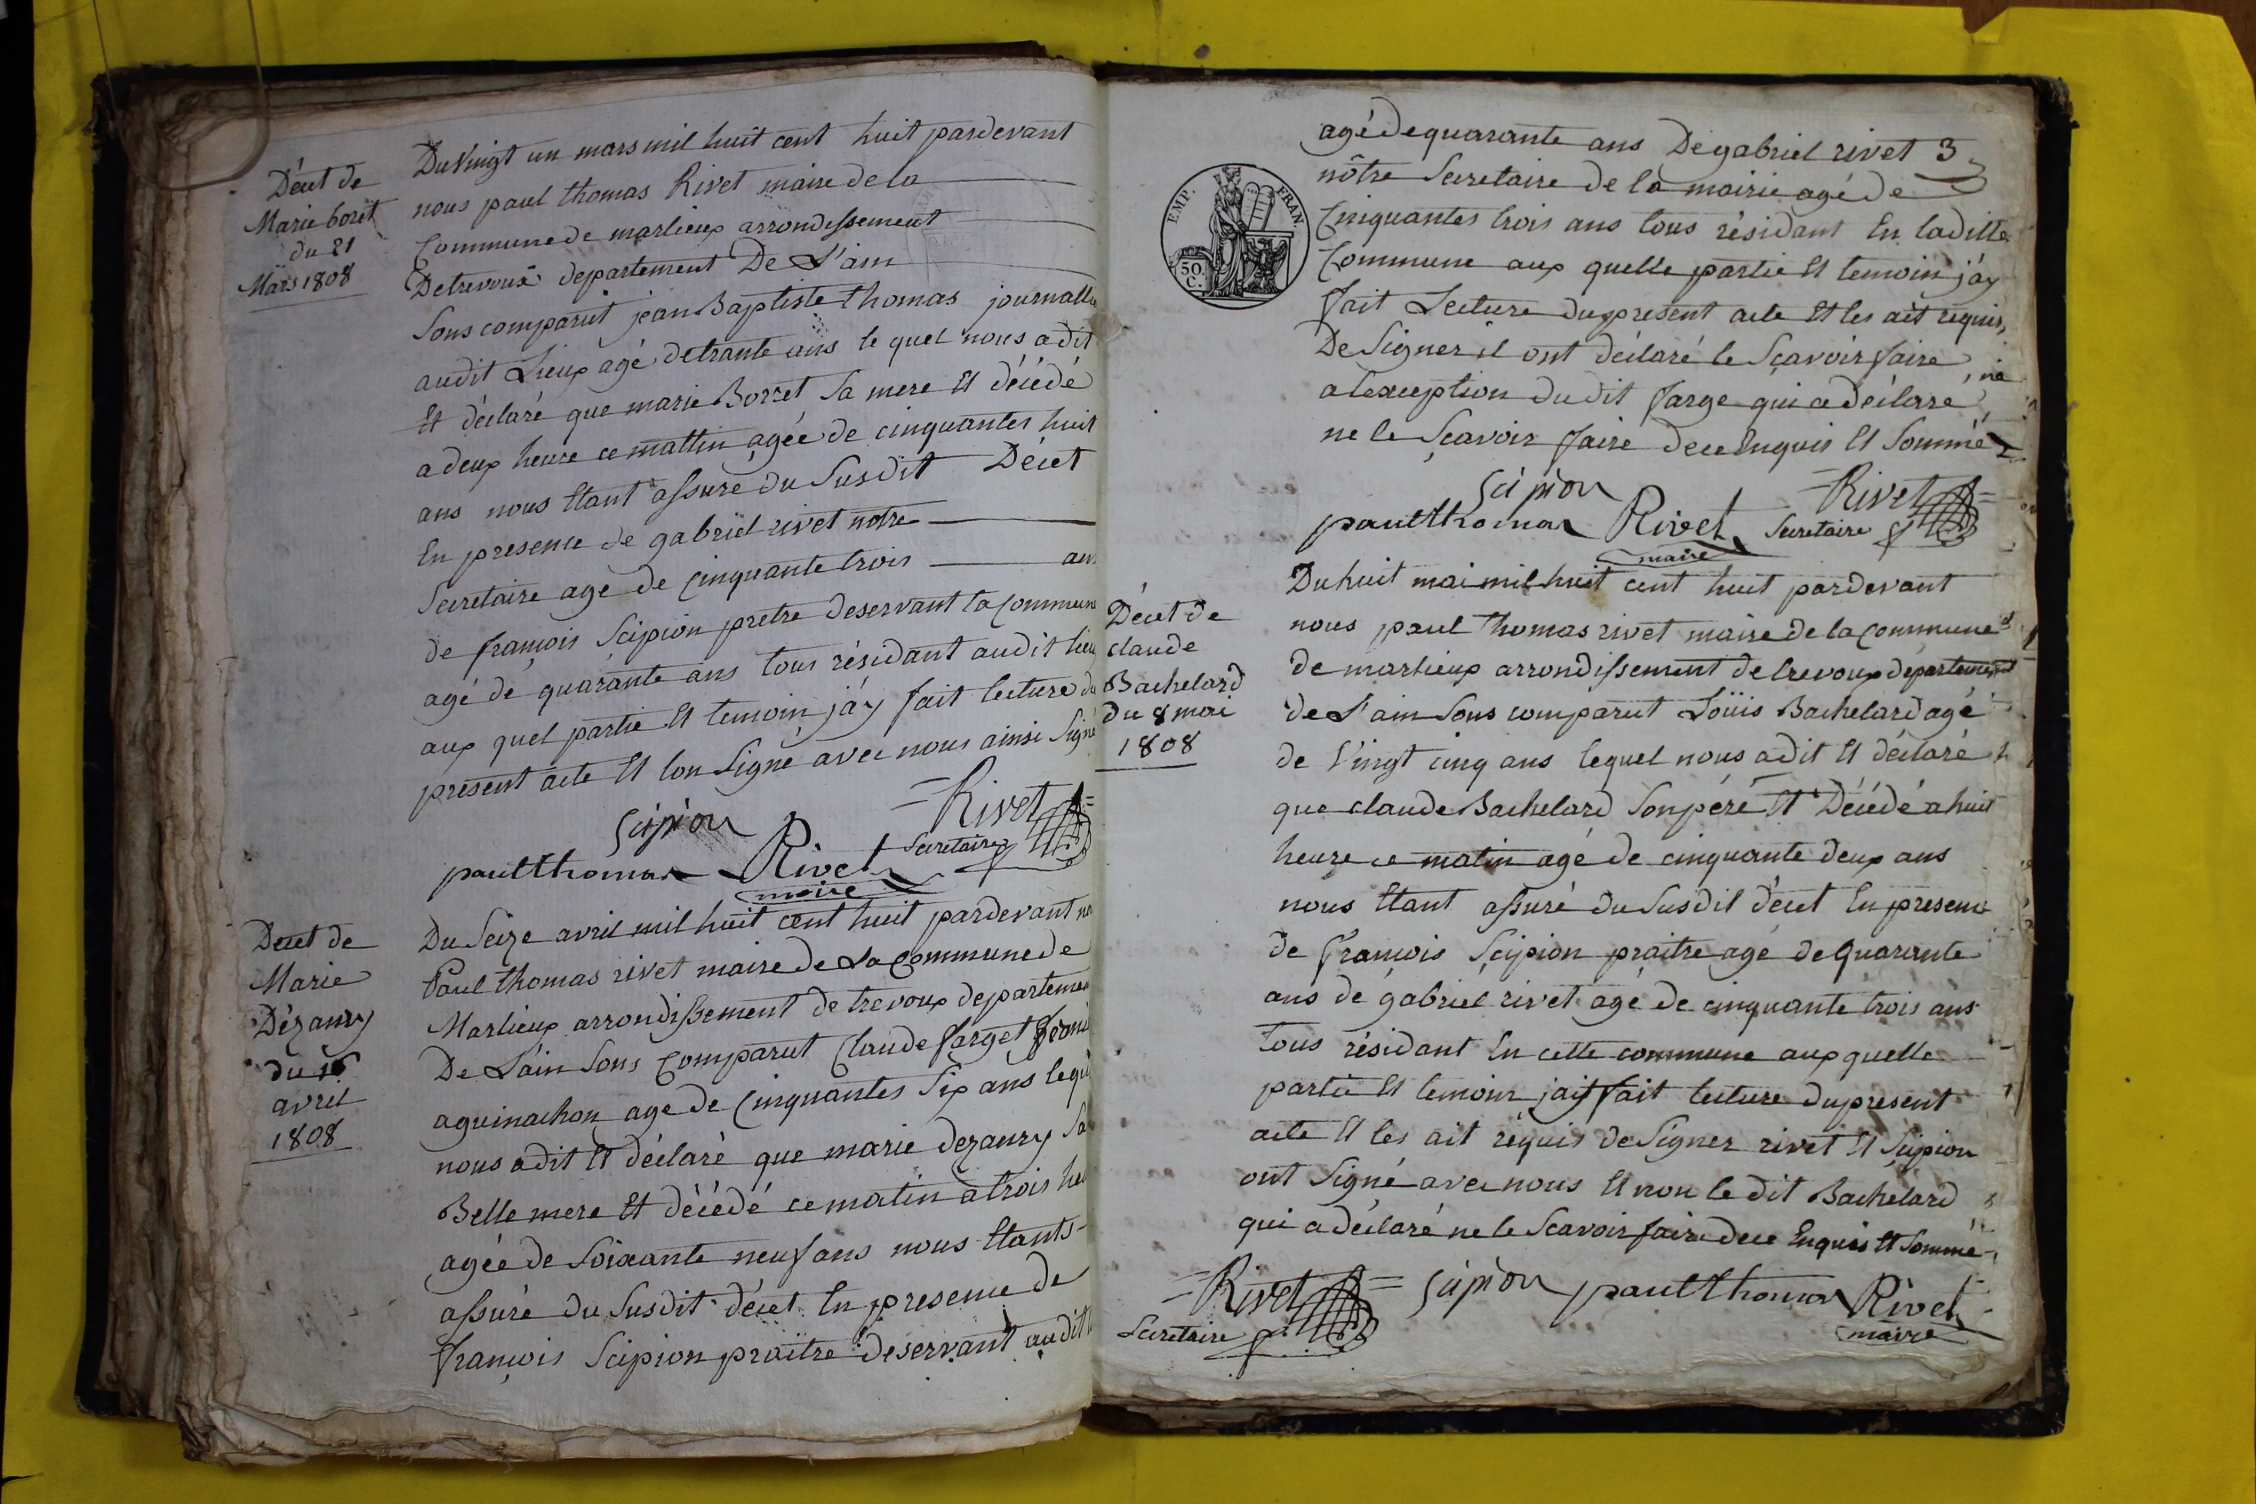 Décet de
Marie boret
du 21
Mars 1808
Du Vingt un mars mil huit cent huit pardevant
nous paul thomas Rivet maire de la
Commune de marlieux arrondissement
De trevoux departement De L'ain
Sons comparut jean Baptiste thomas journallie
audit Lieux agé de trante ans le quel nous a dit
Et déclaré que marie Borret Sa mere Et décédé
a deux heure ce mattin agée de cinquantes huit
ans nous Etant assuré du Susdit Décet
En presence de gabriel rivet notre
Secretaire agé de Cinquante trois ans
de françois Scipion pretre deservant la Commune
agé de quarante ans tous résidant audit lieu
aux quel partie Et temoin j'áy fait lecture du
present acte Et lon Signé avec nous ainsi Signé
Scipion
=Rivet=
Secretaire
paul thomas Rivet
maire
Decet de
Marie
Dézanry
du 16
avril
1808
Du Seize avril mil huit cent huit pardevant no
Paul thomas rivet maire de La Commune de
Marlieux arrondissement de trevoux departemen
De L'ain Sons Comparut Claude farget
aguinachon age de Cinquantes Six ans lequ
nous a dit Et déclaré que marie dezanry Sa
Belle mere Et décédé ce matin a trois heu
agée de Soixante neuf ans nous Etants
assuré du Susdit décet En presence de
françois Scipion praitre deservant audit
agé de quarante ans De gabriel rivet 3
nôtre Secretaire de la mairie agé de
Cinquantes trois ans tous résidant En laditte
Commune aux quelle partie Et temoin j'áy
fait Lecture du present acte Et les ait réquis
De Signer il ont déclaré le Sçavoir faire
a lexception du dit farge qui a déclaré
ne le Sçavoir faire de ce Enquis Et Sommé
EMP. FRAN.
50
C.
Scipion
=Rivet=
paul thomas Rivet
Secretaire
maire
Décet de
claude
Bachelard
du 8 mai
1808
Du huit mai mil huit cent huit pardevant
nous paul thomas rivet maire de la Commune
de marlieux arrondissement de trevoux departement
de L'ain Sons comparut Loüis Bachelard agé
de Vingt cinq ans lequel nous a dit Et déclaré
que claude Bachelard Son péré Et Décédé a huit
heure ce matin agé de cinquante deux ans
nous Etant assuré du Susdit décet En presence
de françois Scipion praitre agé de quarante
ans de gabriel rivet agé de cinquante trois ans
tous résidant En cette commune aux quelle
partie Et temoin j'ait fait lecture du present
acte Et les ait réquis de Signer rivet Et Scipion
ont Signé avec nous Et non le dit Bachelard
qui a déclaré ne le Scavoir faire de ce Enquis Et Sommé
=Rivet= Scipion paul thomas Rivet
Secretaire
maire